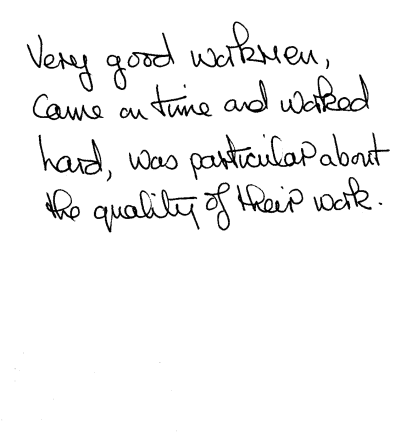 Very good workmen,
came on time and worked
hard, was particular about
the quality of their work.